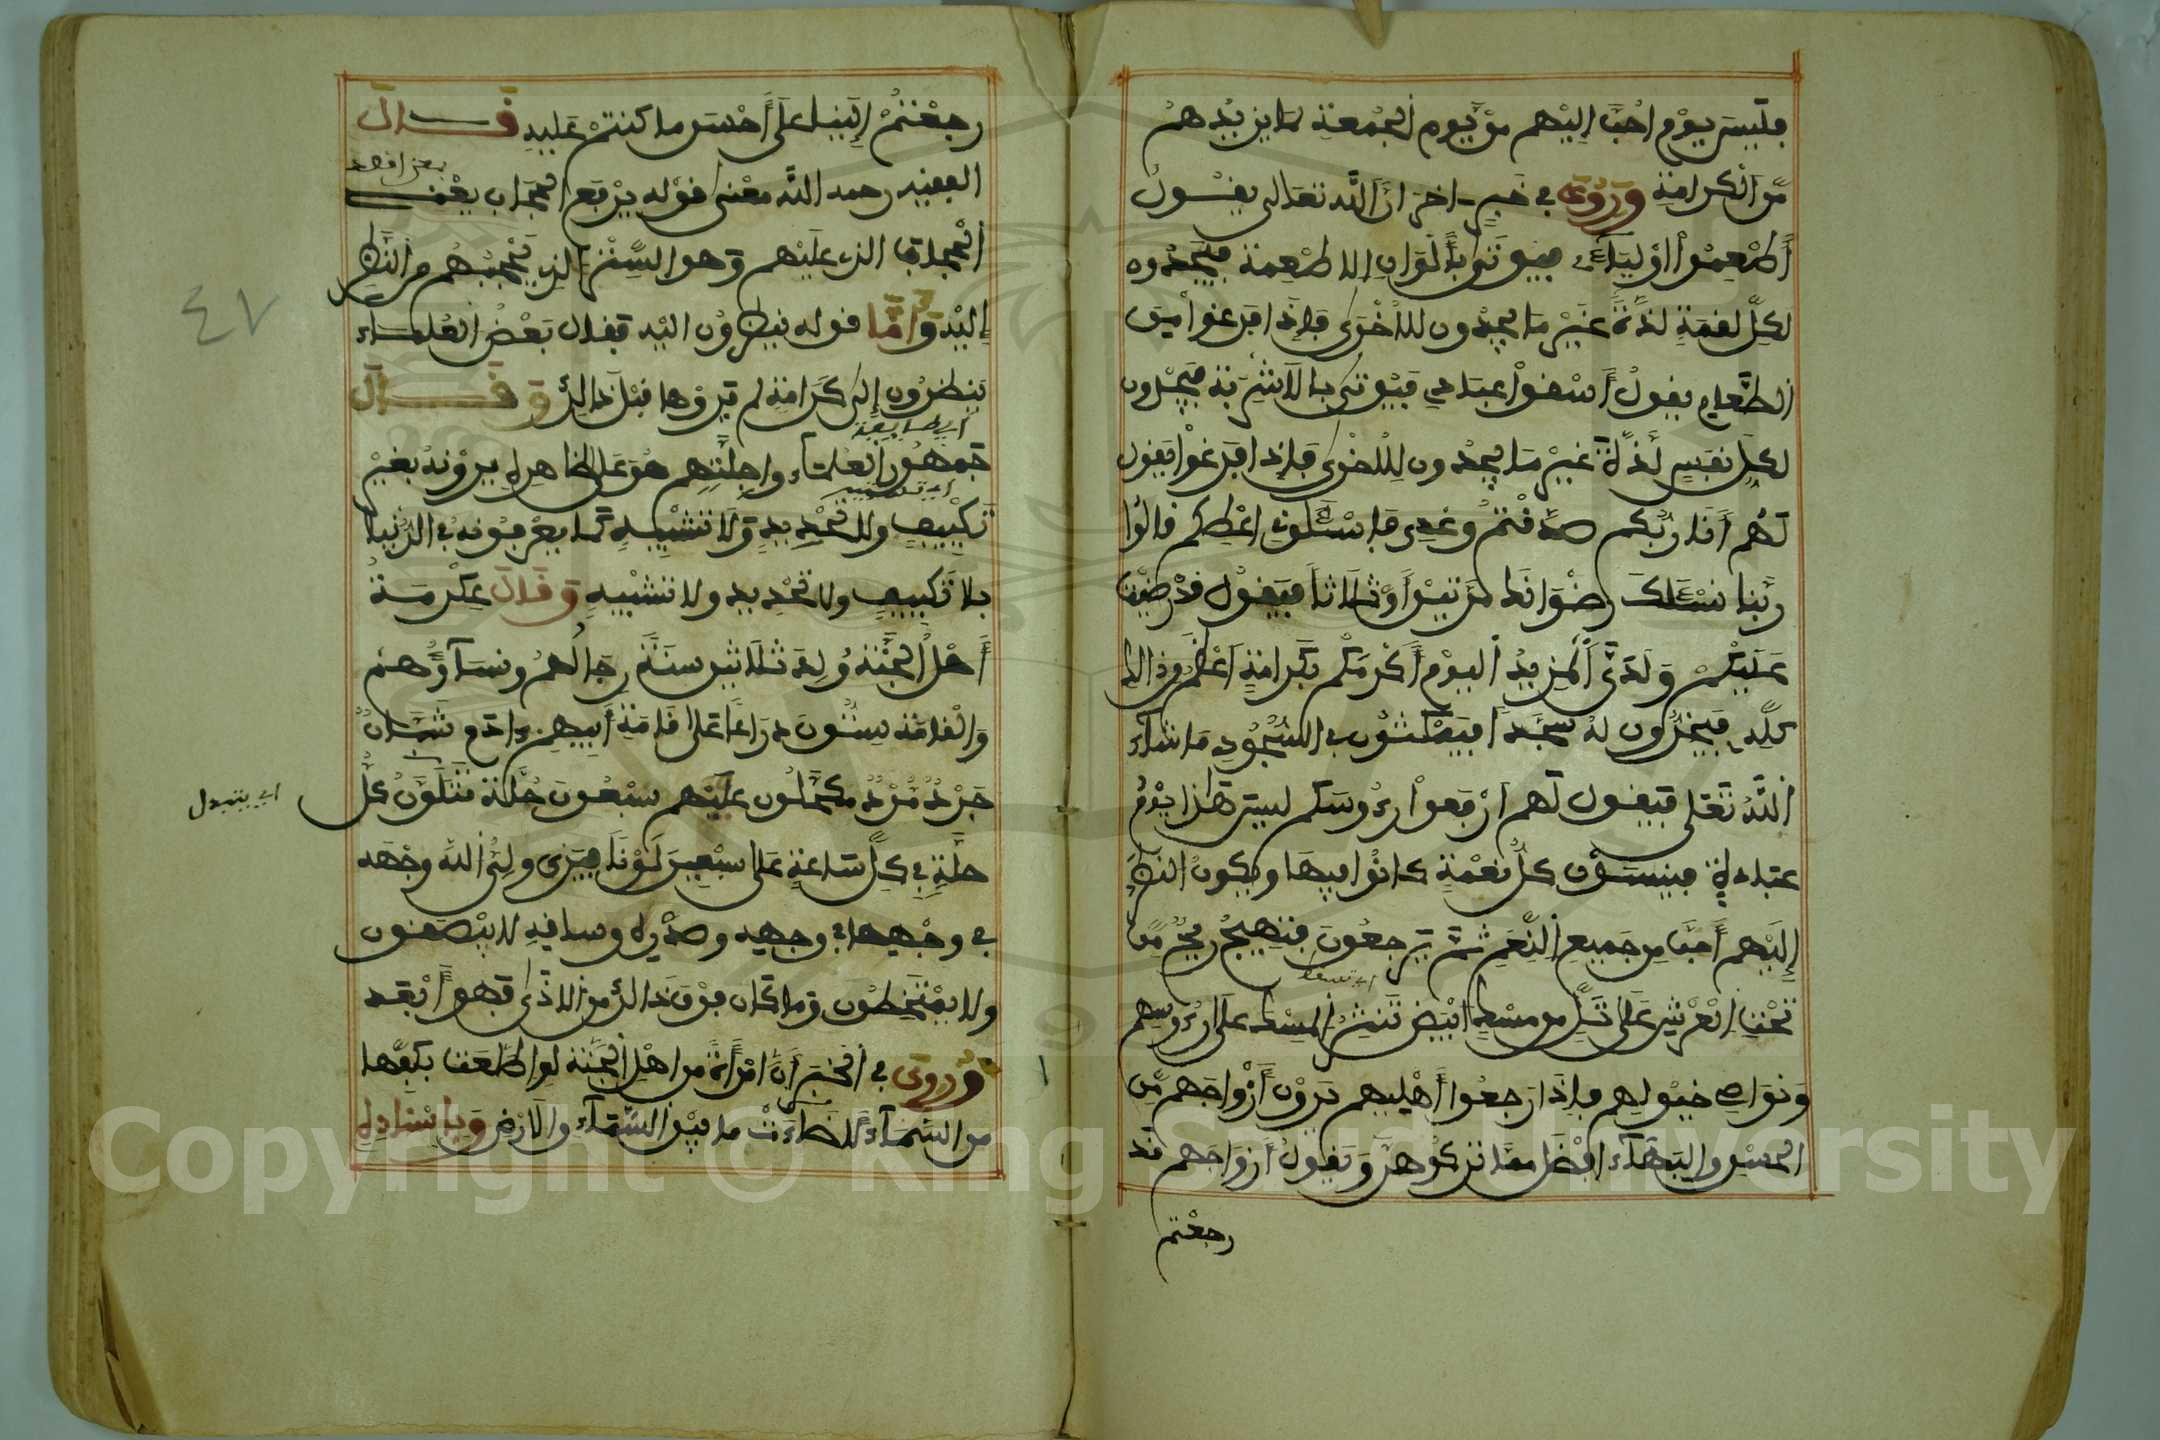 فليس يوم احب إليهم من يوم الجمعة لما يزيدهم
من الكرامة وروي في خبر اخر ان الله تعالى يقول
أطعموا أوليائي فيوتى بألوان الاطعمة فيجدون
لكل لقمة لذة غير ما يجدون للاخرى فإذا فرغوا من
الطعام يقول أسقوا عبادي فيوتى بالاشربة فيجدون
لكل نفس لذة غير ما يجدون للاخرى فإذا فرغوا يقول
لهم أنا ربكم صدقتم وعدي فاسئلوني اعطكم قالوا
ربنا نسئلك رضوانك مرتين أو ثلاثا فيقول قد رضيت
عليكم ولدي المزيد اليوم أكرمكم بكرامة اعظم من ذالك
كله فيخرون له سجدا فيمكثون في السجود ما شاء
الله تعلى فيقول لهم ارفعوا رءوسكم ليس هذا يوم
عبادة فينسون كل نعمة كانوا فيها ويكون النظر
إليهم أحب من جميع النعم ثم يرجعون فتهيج ريح من
تحت العرش على تل من مسك ابيض تنثر المسك على رءوسهم
ونواصي خيولهم فإذا رجعوا أهليهم يرون أزواجهم من
الحسن والبهاء افضل مما تركوهن وتقول أزواجهم قد
رجعتم
رجعتم إلينا على أحسن ما كنتم عليه قال
الفقيه رحمه الله معنى قوله يرفع الحجاب يعني
الحجاب الذي عليهم وهو الستر الذي يحجبهم من النظر
إليه وأما قوله ينظرون اليه فقال بعض العلماء
ينظرون إلى كرامة لم يروها قبل ذالك وقال
جمهور العلماء واجلتهم هو على الظاهر يرونه بغير
تكييف ولا تحديد ولا تشبيه كما يعرفونه في الدنيا
بلا تكييف ولا تحديد ولا تشبيه وقال عكرمة
أهل الجنة ولد ثلاثين سنة رجالهم ونساؤهم
والقامة ستون ذراعا على قامة أبيهم ءادم شبان
جرد مرد مكحلون عليهم سبعون حلة تتلون كل
اي يتبدل
حلة في كل ساعة على سبعين لونا فيرى ولي الله وجهه
في وجهها في وجهه وصدره وساقيه لا يبصقون
ولا يمتخطون وما كان فوق ذالك من الاذى فهو أبعد
وروي في الخبر أن امرأة من اهل الجنة لو اطلعت بكفها
من السماء لاضاءت ما بين السماء والارض وبإسناده
٤٧